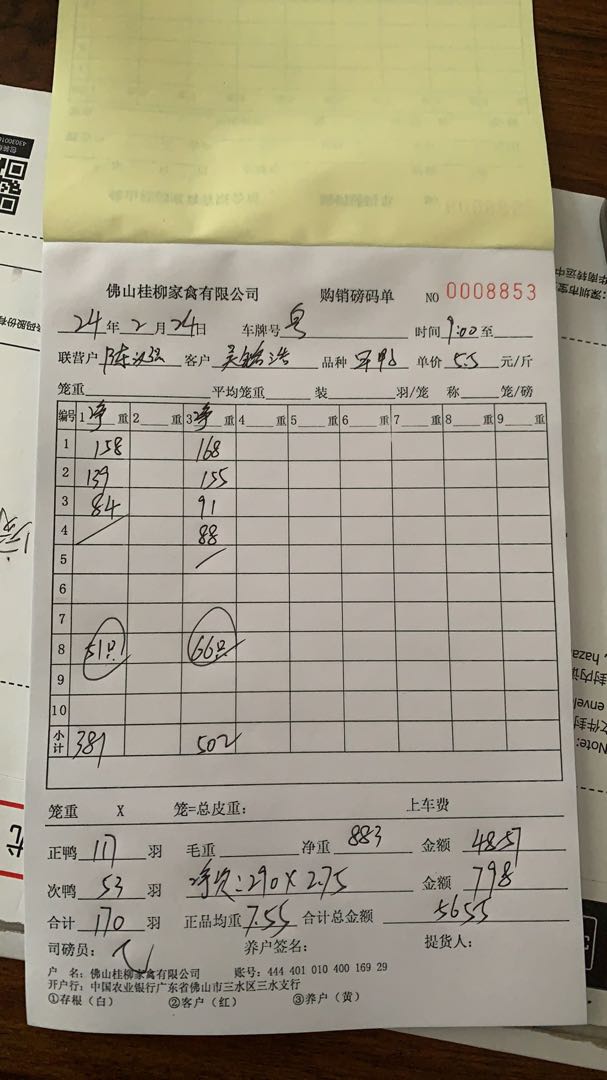 佛山桂柳家禽有限公司 购销磅码单 NO 0008853
24年2月24日 车牌号 粤 时间 9:00至
联营户 客户 品种 单价 5.5 元/斤
笼重 平均笼重 装 羽/笼 称 笼/磅
编号 1净重 2 重 3净重 4 重 5 重 6 重 7 重 8 重 9 重
1 158 168
2 139 155
3 84 91
4 88
5
6
7
8 51只 66只
9
10
小计 381 502
笼重 X 笼=总皮重: 上车费
正鸭 117 羽 毛重: 净重 883 金额 4857
次鸭 53 羽 净重:290×2.75 金额 798
合计 170 羽 正品均重 7.55 合计总金额 5655
司磅员: 养户签名: 提货人:
户 名:佛山桂柳家禽有限公司 账号:444 401 010 400 169 29
开户行:中国农业银行广东省佛山市三水区三水支行
①存根(白) ②客户(红) ③养户(黄)